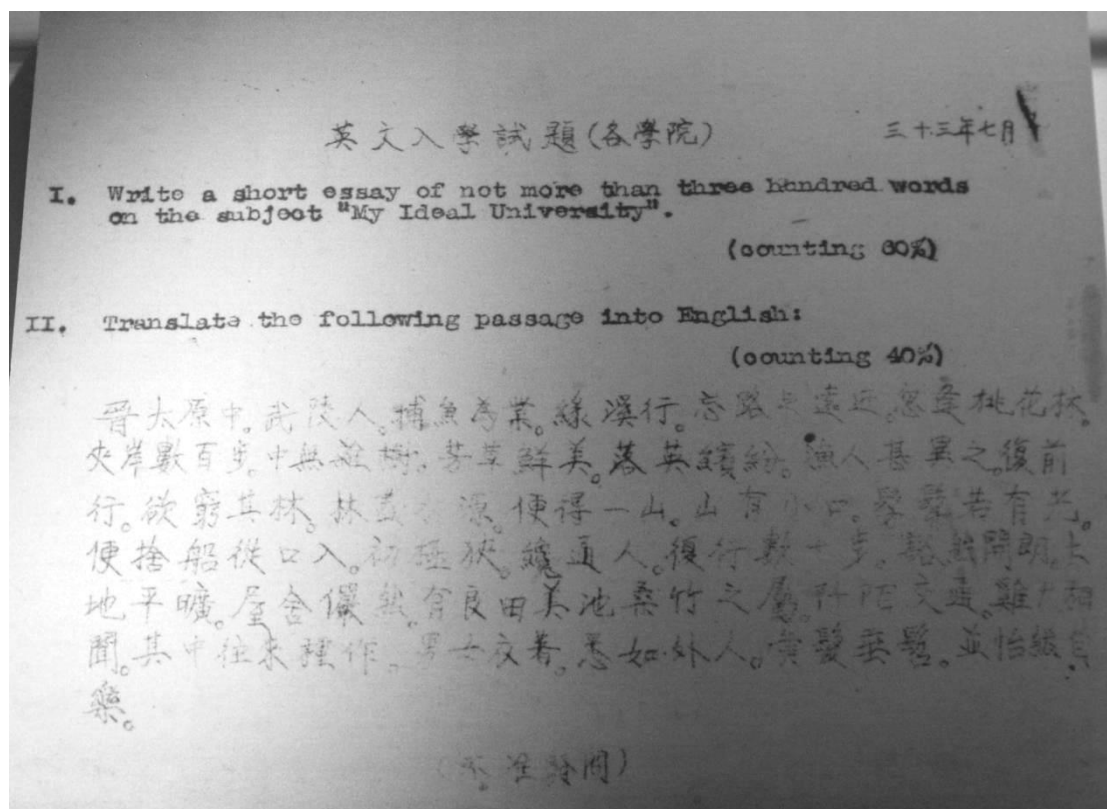 英文入學試題(各學院) 三十三年七月
I. Write a short essay of not more than three hundred words
on the subject "My Ideal University".
(counting 60%)
II. Translate the following passage into English:
(counting 40%)
晉太原中。武陵人。捕魚為業。緣溪行。忘路之遠近。忽逢桃花林。
夾岸數百步。中無雜樹。芳草鮮美。落英繽紛。漁人甚異之。復前
行。欲窮其林。林盡水源。便得一山。山有小口。髣髴若有光。
便捨船從口入。初極狹。纔通人。復行數十步。豁然開朗。土
地平曠。屋舍儼然。有良田美池桑竹之屬。阡陌交通。雞犬相
聞。其中往來種作。男女衣着。悉如外人。黃髮垂髫。並怡然自
樂。
(不准發問)